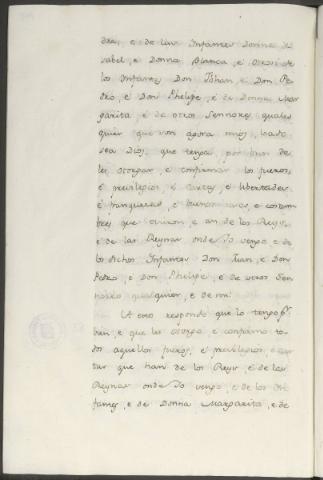 dra, e de las Infantas Donna Y
sabel, e Donna Blanca, e otrosi de
los Infantes Don Johan, e Don Pe
dro, e Don Phelipe, e de Donna Mar
garita, e de otros Sennores, quales
quier que son agora mios, loado
sea Dios, que tenga por bien de
les otorgar e confirmar los fueros,
e previlegios, e cartas, e libertades
e franquezas, e buenos usos, e costum
bres que ovieron e an de los Reyes,
e de las Reynas onde Yo vengo e de
los dichos Infantes Don Juan, e Don
Pedro, e Don Phelipe, e de otros Sen
nores qualquier, e de mi:
A esto respondo que lo tengo por
bien, e que les otorgo e confirmo to
dos aquellos fueros, e previlegios, e car
tas que han de los Reys, e de las
Reynas onde Yo vengo, e de los In
fantes, e de Donna Margarita, e de